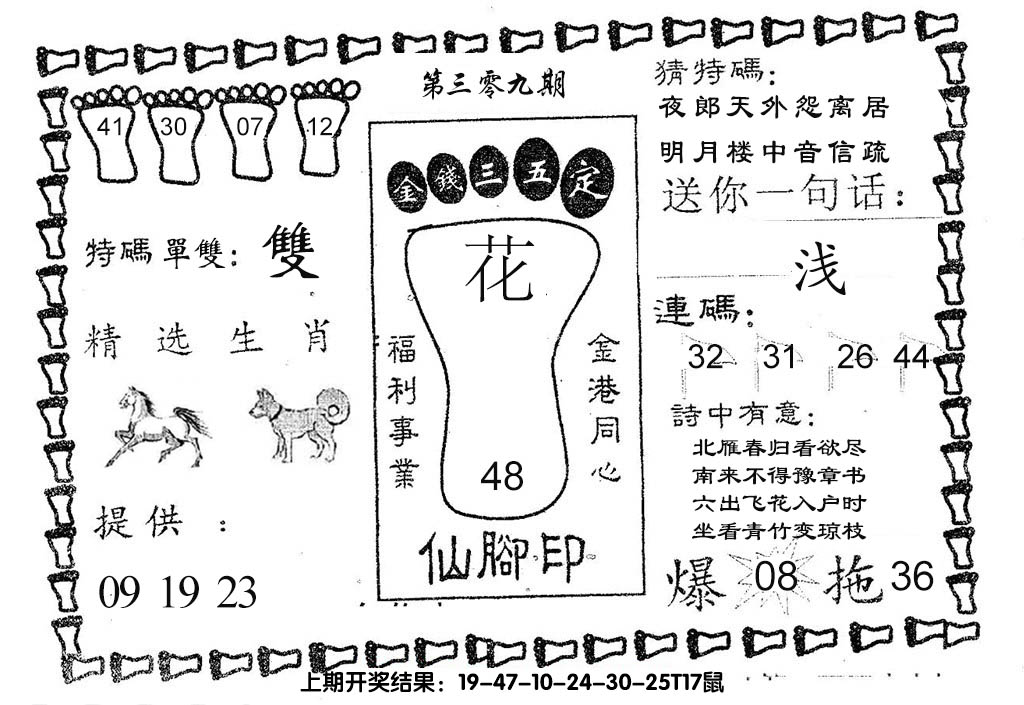 第三零九期
41 30 07 12
特碼單雙：雙
精选生肖
提供：
09 19 23
金錢三五定
花
福利事業
金港同心
48
仙腳印
猜特碼：
夜郎天外怨离居
明月楼中音信疏
送你一句话：
浅
連碼：
32 31 26 44
詩中有意：
北雁春归看欲尽
南来不得豫章书
六出飞花入户时
坐看青竹变琼枝
爆 08 拖 36
上期开奖结果：19-47-10-24-30-25T17鼠